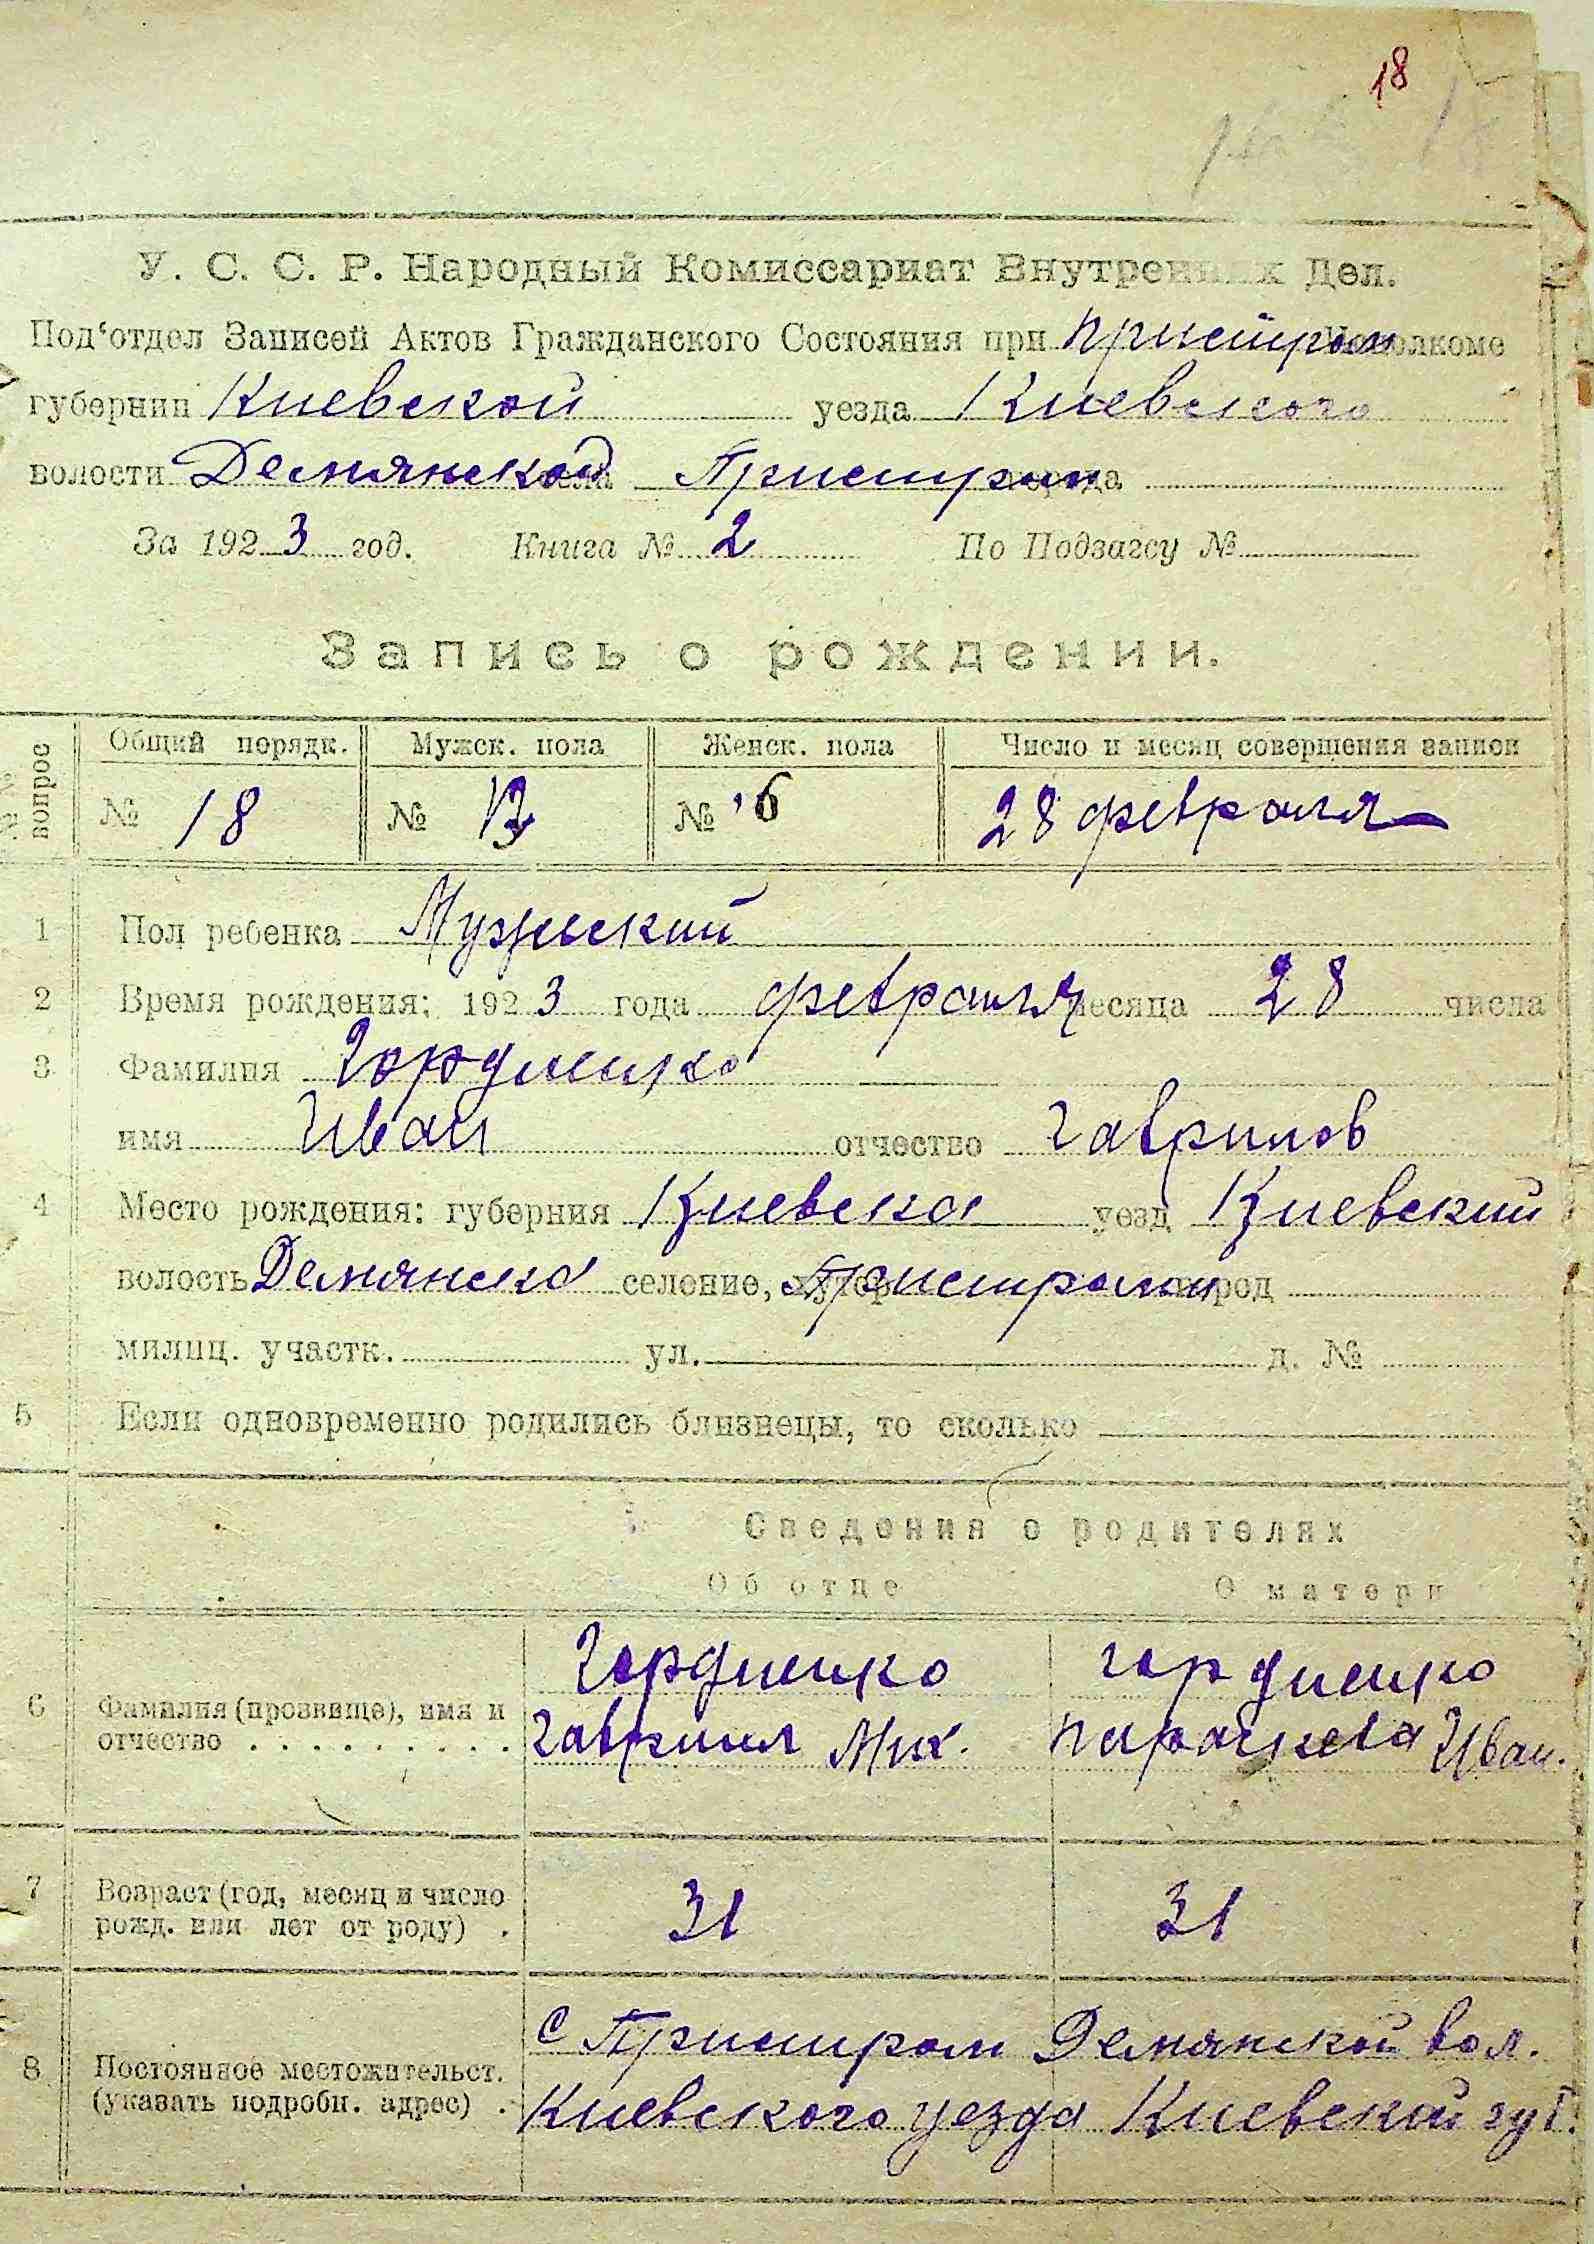 18
У. С. С. Р. Народный Комиссариат Внутренних Дел.
Под'отдел Записей Актов Гражданского Состояния при Пристром Исполкоме
губернии Киевской уезда Киевского
волости Демянской села Пристром города
За 1923 год. Книга № 2 По Подзагсу №
Запись о рождении.
№№ вопрос
Общий порядк. Мужск. пола Женск. пола Число и месяц совершения записи
№ 18 № 12 № 6 28 февраля
1 Пол ребенка Мужеский
2 Время рождения: 1923 года февраля месяца 28 числа
3 Фамилия Гордиенко
имя Иван отчество Гаврилов
4 Место рождения: губерния Киевска уезд Киевский
волость Демянска селение, хутор Пристроми город
милиц. участк. ул. д. №
5 Если одновременно родились близнецы, то сколько
Сведения о родителях
Об отце О матери
Гордиенко Гордиенко
6 Фамилия (прозвище), имя и отчество Гавриил Мих. Параскева Иван.
7 Возраст (год, месяц и число рожд. или лет от роду) 31 31
с Пристром Демянской вол.
8 Постоянное местожительст. (указать подробн. адрес) Киевского уезда Киевской губ.